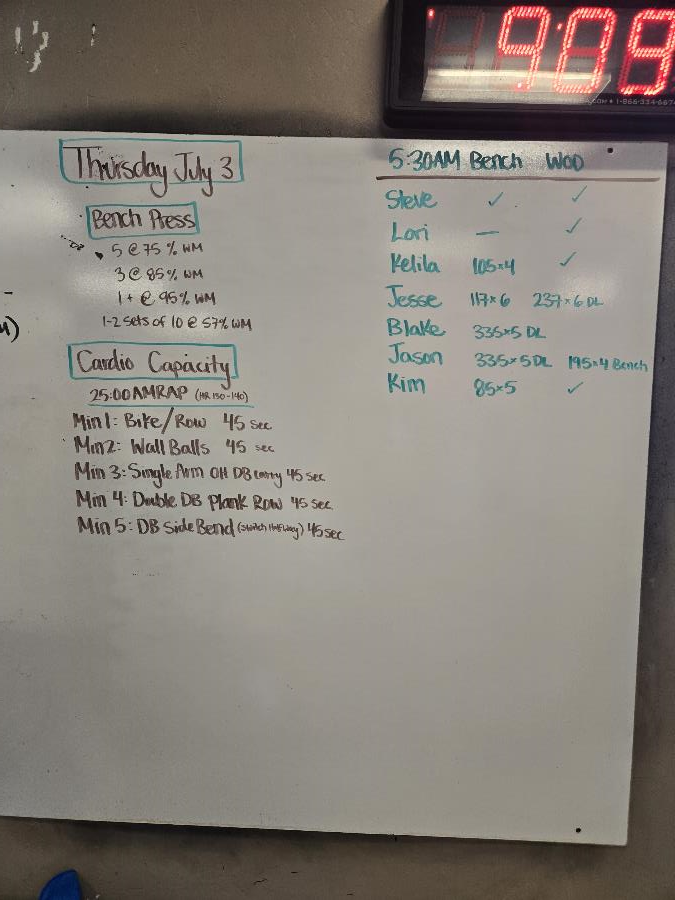 9:09
Thursday July 3
Bench Press
5 @ 75% WM
3 @ 85% WM
1+ @ 95% WM
1-2 sets of 10 @ 57% WM
Cardio Capacity
25:00 AMRAP (HR 130-140)
Min 1: Bike/Row 45 sec
Min 2: Wall Balls 45 sec
Min 3: Single Arm OH DB carry 45 sec
Min 4: Double DB Plank Row 45 sec
Min 5: DB Side Bend (switch halfway) 45 sec
5:30AM Bench WOD
Steve ✓ ✓
Lori — ✓
Kelila 105×4 ✓
Jesse 117×6 237×6 DL
Blake 335×5 DL
Jason 335×5 DL 195×4 Bench
Kim 85×5 ✓